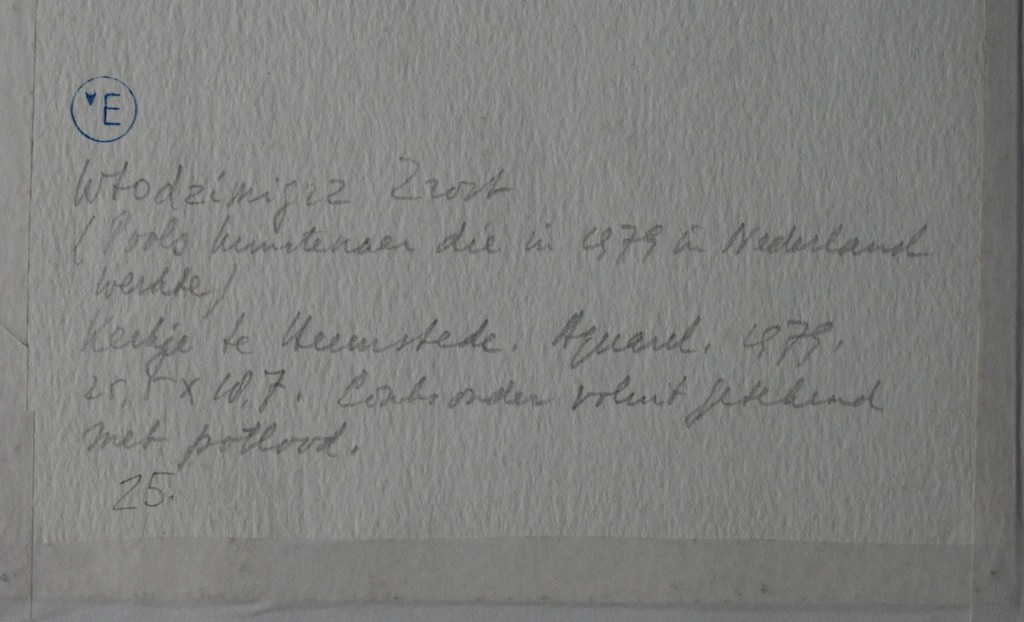 E
Włodzimierz Zrost
(Pools kunstenaar die in 1979 in Nederland
werkte)
Kerkje te Heemstede. Aquarel. 1979.
25,5 x 18,7. Linksonder voluit getekend
met potlood.
25.